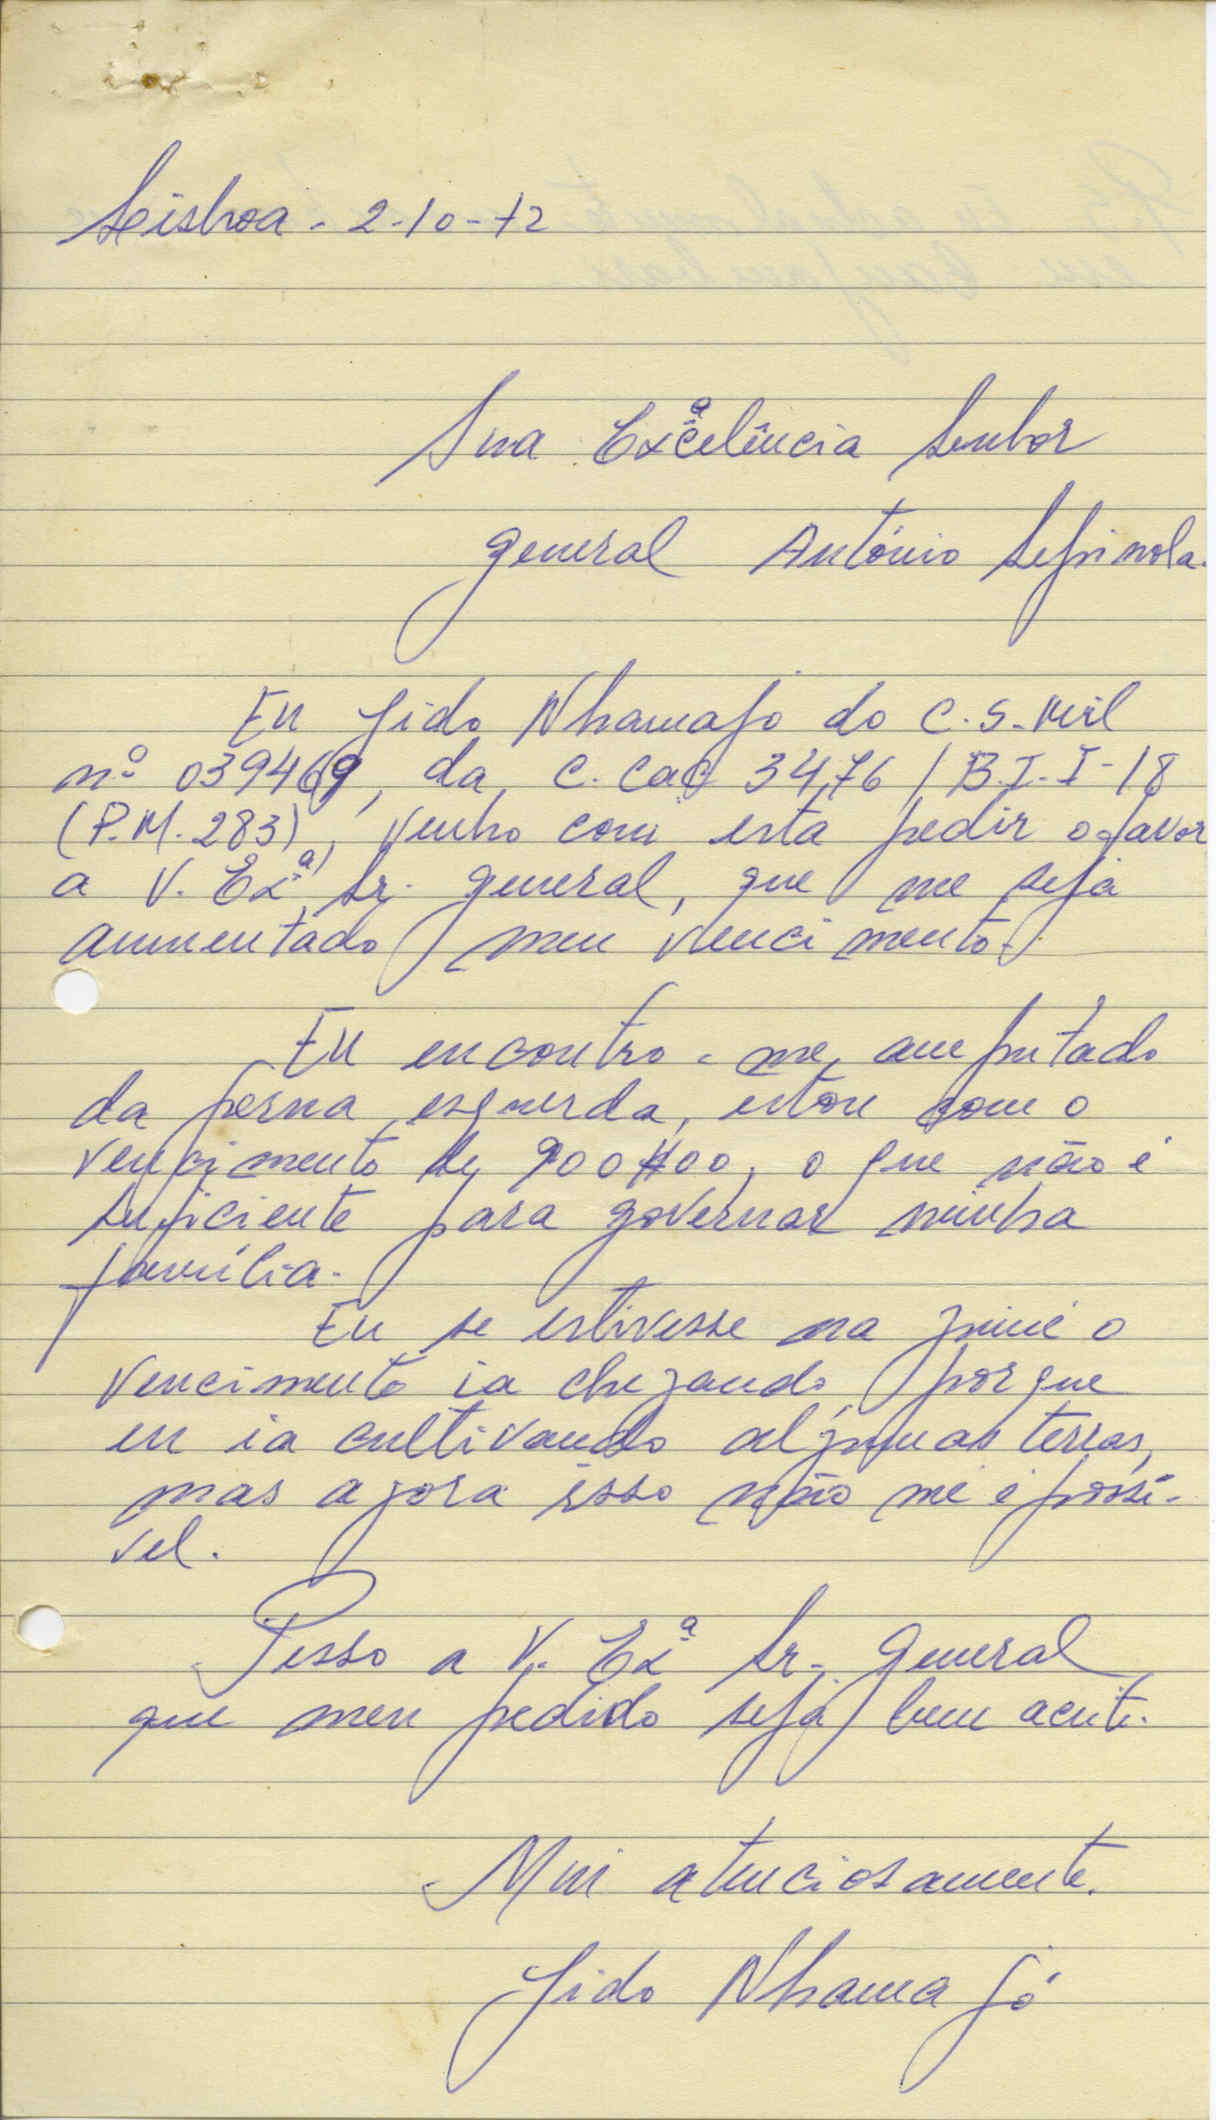 Lisboa - 2-10-72
Sua Exªcelência Senhor
general António Sepinola.
Eu Jido Nhamajó do C.S. Mil
nº 039469, da C. Caç 3476 / B.I.I-18
(P.M. 283), venho com esta pedir o favor
a V. Exª, Sr. general, que me seja
aumentado meu vencimento.
Eu encontro-me amputado
da perna esquerda, estou com o
vencimento de 900$00, o que não é
suficiente para governar minha
família.
Eu se estivesse na guiné o
vencimento ia chegando, porque
eu ia cultivando algumas terras,
mas agora isso não me é possi-
vel.
Pesso a V. Exª Sr. General
que meu pedido seja bem aceite.
Mui atenciosamente.
Jido Nhama Jó